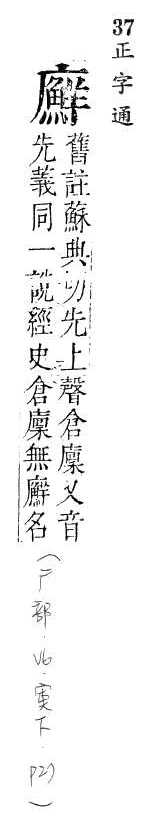 37 正字通
廯
舊註蘇典切先上聲倉廩又音
先義同一說經史倉廩無廯名
(广部．V6．寅下．P27)